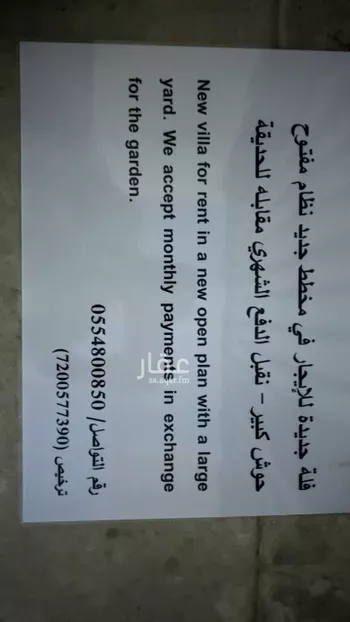 فلة جديدة للإيجار في مخطط جديد نظام مفتوح
حوش كبير - نقبل الدفع الشهري مقابله للحديقة
New villa for rent in a new open plan with a large
yard. We accept monthly payments in exchange
for the garden.
رقم التواصل/ 0554800850
ترخيص (7200577390)
عقار
sa.aqar.fm